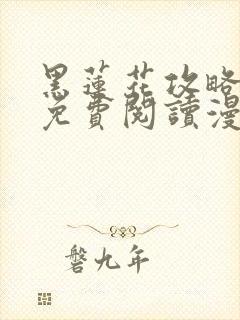 黑蓮花攻略
免費閱讀漫
磐九年